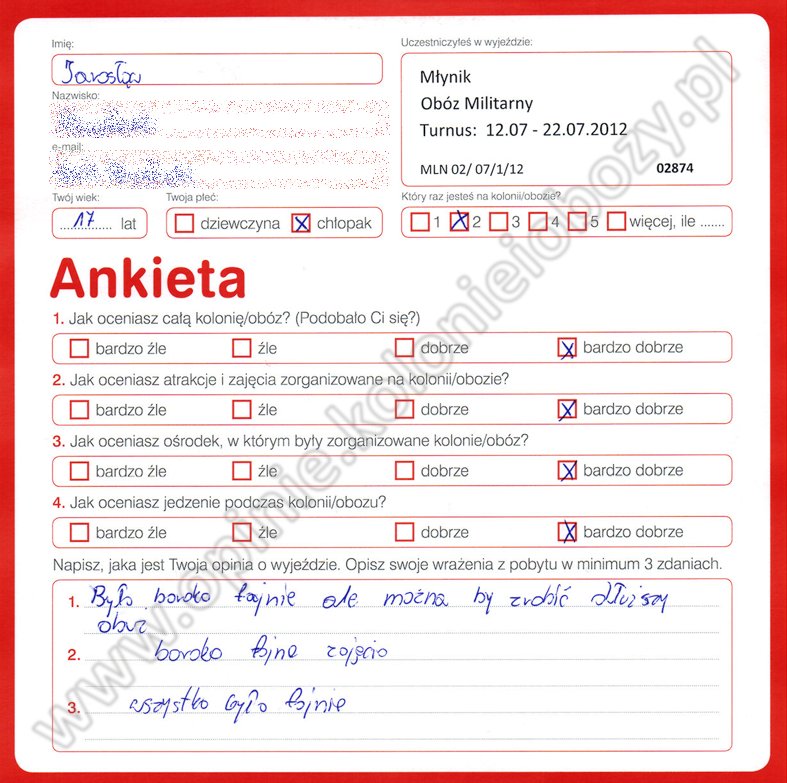 Imię:
Jarosław
Uczestniczyłeś w wyjeździe:
Młynik
Obóz Militarny
Turnus: 12.07 - 22.07.2012
MLN 02/ 07/1/12 02874
Nazwisko:
e-mail:
Twój wiek:
17 lat
Twoja płeć:
dziewczyna x chłopak
Który raz jesteś na kolonii/obozie?
1 x 2 3 4 5 więcej, ile .......
Ankieta
1. Jak oceniasz całą kolonię/obóz? (Podobało Ci się?)
bardzo źle źle dobrze x bardzo dobrze
2. Jak oceniasz atrakcje i zajęcia zorganizowane na kolonii/obozie?
bardzo źle źle dobrze x bardzo dobrze
3. Jak oceniasz ośrodek, w którym były zorganizowane kolonie/obóz?
bardzo źle źle dobrze x bardzo dobrze
4. Jak oceniasz jedzenie podczas kolonii/obozu?
bardzo źle źle dobrze x bardzo dobrze
Napisz, jaka jest Twoja opinia o wyjeździe. Opisz swoje wrażenia z pobytu w minimum 3 zdaniach.
1. Było bardzo fajnie ale można by zrobić dłuższy
obuz
2. bardzo fajne zajęcia
3. wszystko było fajnie
www.opinie.kolonieiobozy.pl